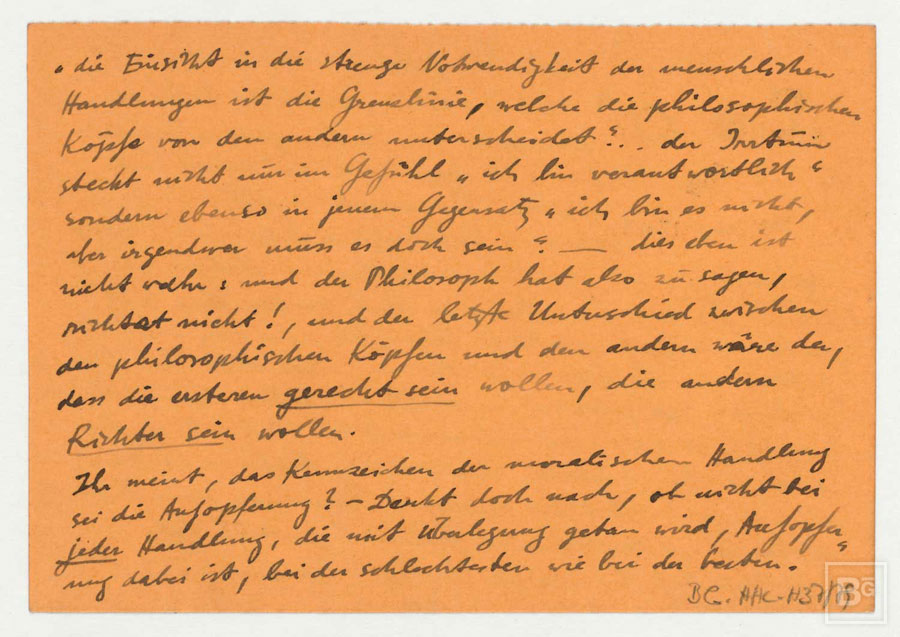 „die Einsicht in die strenge Notwendigkeit der menschlichen
Handlungen ist die Grenzlinie, welche die philosophischen
Köpfe von den andern unterscheidet“... der Irrtum
steckt nicht nur im Gefühl „ich bin verantwortlich“
sondern ebenso in jenem Gegensatz „ich bin es nicht,
aber irgendwer muss es doch sein“. — dies eben ist
nicht wahr: und der Philosoph hat also zu sagen,
richtet nicht!, und der letzte Unterschied zwischen
den philosophischen Köpfen und den andern wäre der,
dass die ersteren gerecht sein wollen, die andern
Richter sein wollen.
Ihr meint, das Kennzeichen der moralischen Handlung
sei die Aufopferung? – Denkt doch nach, ob nicht bei
jeder Handlung, die mit Überlegung getan wird, Aufopfer-
ung dabei ist, bei der schlechtesten wie bei der besten.“
BG-AHC-H37/75
BG